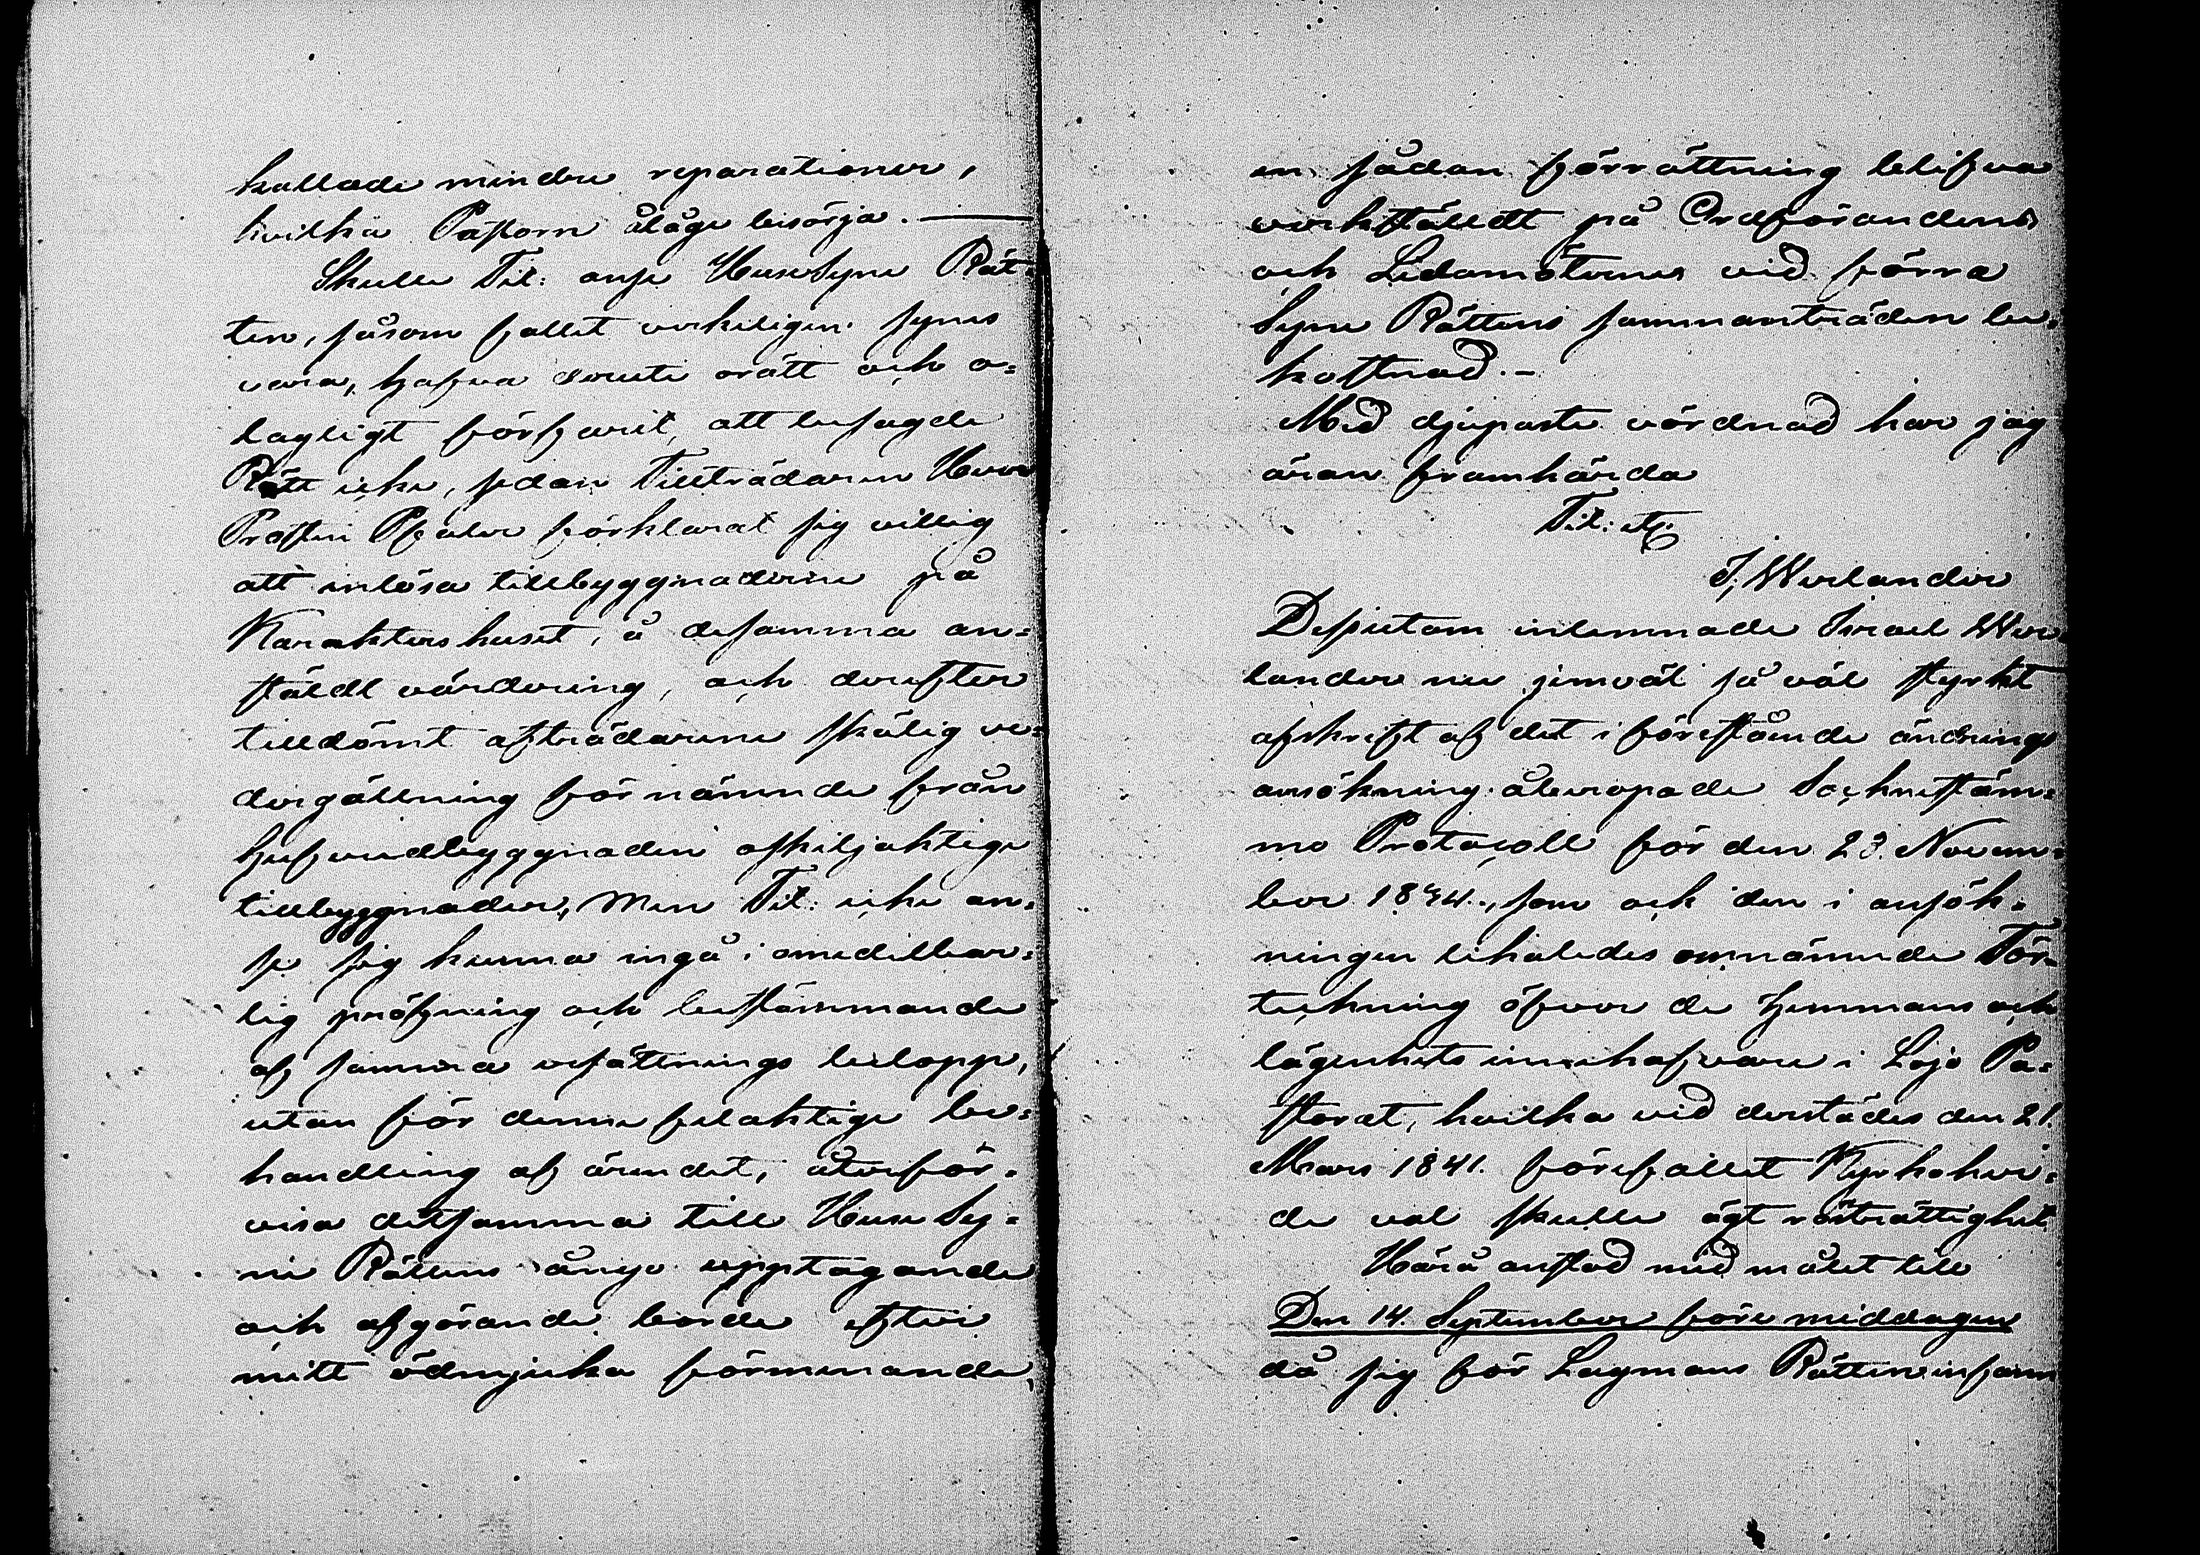 kallade mindre reparationer,
hvilka Pastorn ålåge besörja. —
Skulle Tit: anse HuseSyne Rät-
ten, såsom fallet verkeligen synes
vara, hafva deruti orätt och o-
lagligt förfarit, att besagde
Rätt icke, sedan Tillträdaren Herr
Prosten Pfaler förklarat sig villig
att inlösa tillbyggnaderne på
Karaktershuset, å desamma an-
ställt värdering, och derefter
tilldömt afträdarene skälig ve-
dergällning för nämnde från
hufvudbyggnaden afskiljaktige
tillbyggnader, men Tit: icke an-
se sig kunna ingå i omedelbar-
lig pröfning och bestämmande
af samma ersättnings belopp,
utan för denne felaktige be-
handling af ärendet, återför-
visa detsamma till Huse Sy-
ne Rättens ånyo upptagande
och afgörande borde efter
mitt ödmjuka förmenande,
en sådan förrättning blifva
verkställdt på Ordförandens
och Ledamöternes vid förra
Syne Rättens sammanträden be-
kostnad. -
Med djupaste vördnad har jag
äran framhärda
Tit: etc.
I, Werlander
Desutom inlemnade Israel Wer
lander nu jemväl så väl styrkt
afskrift af det i förestående ändrings
ansökning åberopade Sockenstäm-
mo Protocoll för den 23. Novem-
ber 1834., som ock den i ansök-
ningen likaledes omnämnde För-
teckning öfver de hemmans och
lägenhets innehafvare i Lojo Pa-
storat, hvilka vid derstädes den 21.
Mars 1841. förefallet Kyrkoher-
de val skulle ägt rösträttighet
Härå anstod med målet till
Den 14. September före middagen
då sig för Lagmans Rätten infann